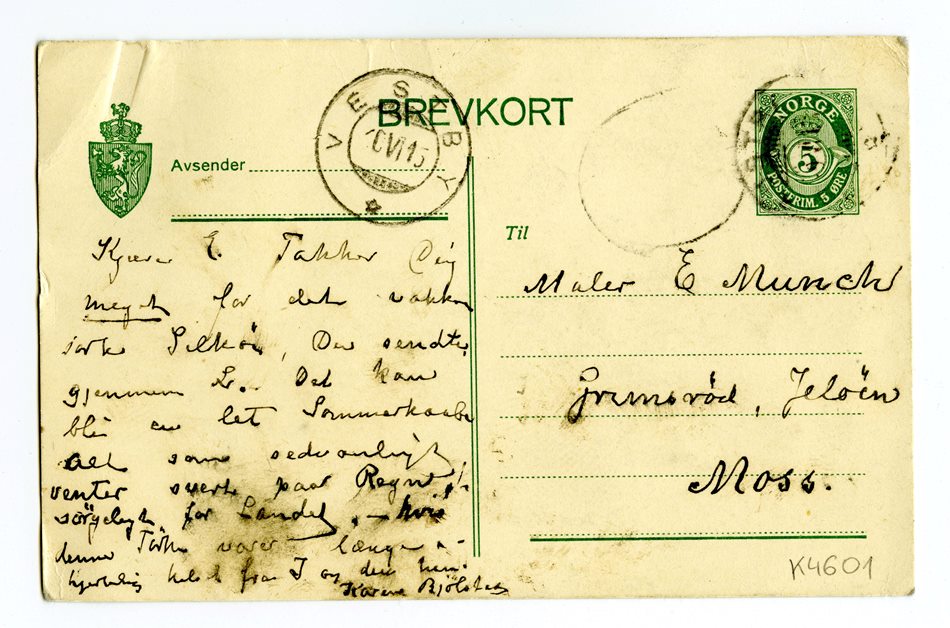 BREVKORT
VESTBY
VI 15
NORGE
5
POSTFRIM. 5 ØRE
Avsender
Til
Kjære E. Takker Dig
meget for det vakre
Silkeöi, Du sendte
gjennem L. Det kan
bli en let Sommerkaabe
Alt som sedvanligt
venter svert paa Regn
sörgeligt for Landet, – hvis
denne Törke varer længe –
hjertelig hilsen fra I og din
Karen Bjölstad
Maler E Munch
Grimsröd, Jelöen
Moss.
K4601